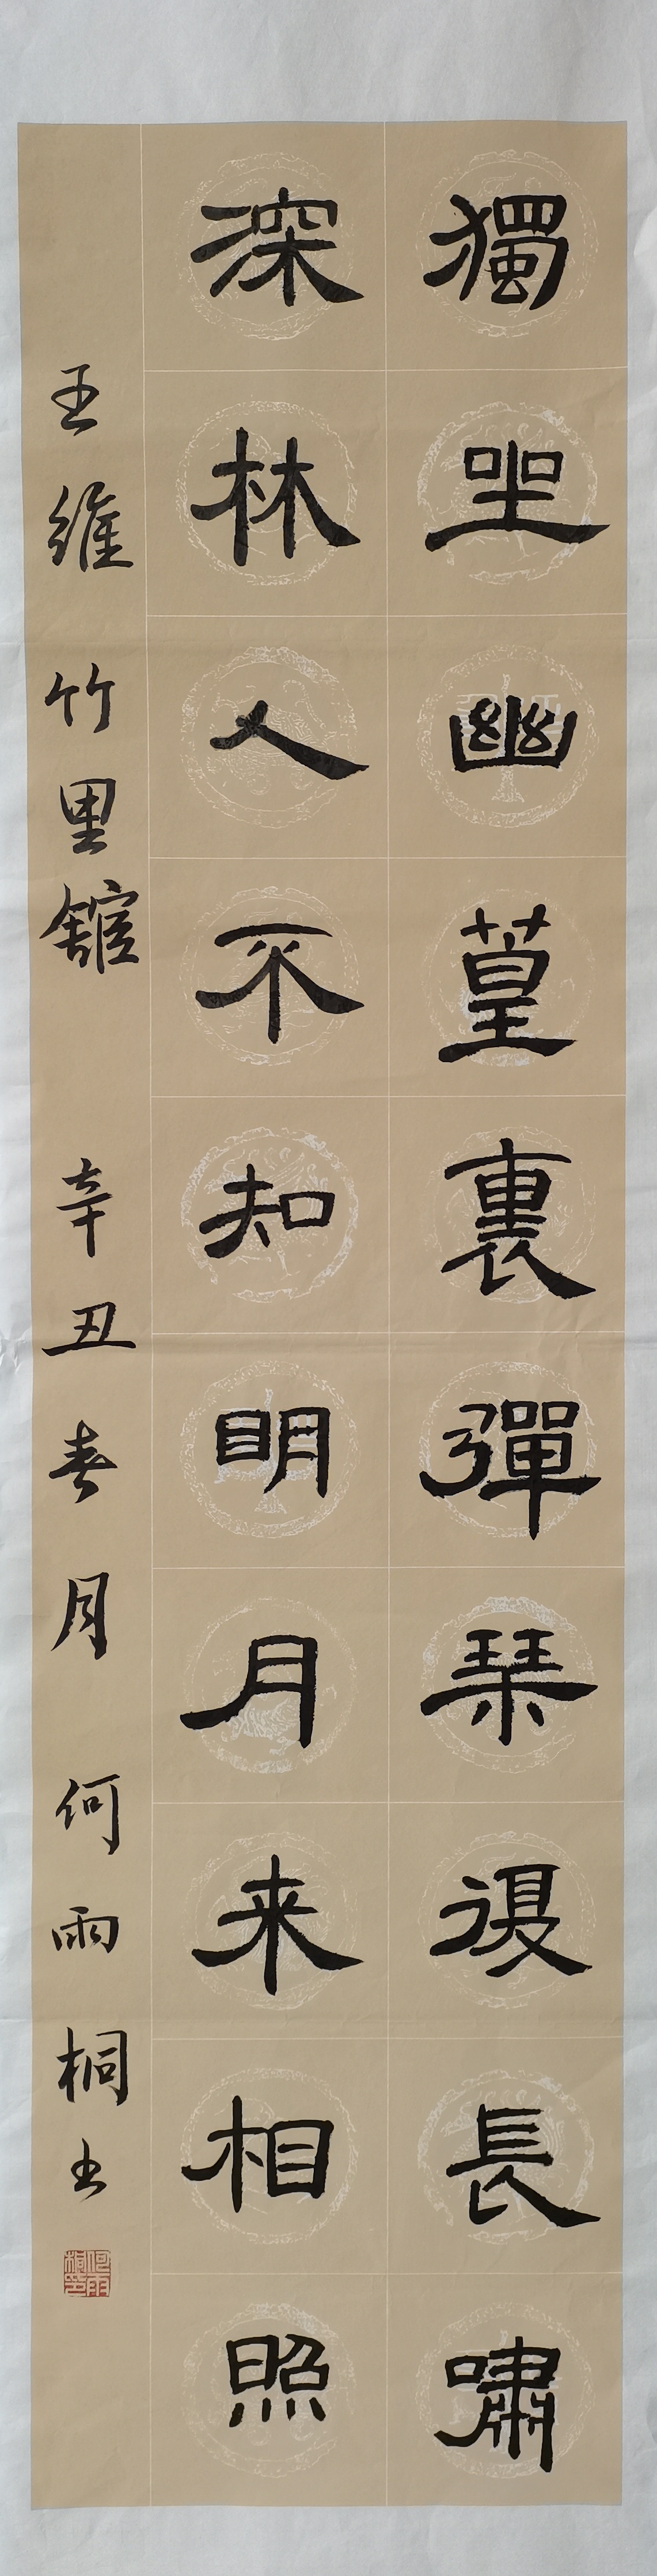 獨坐幽篁裏彈琴復長嘯
深林人不知明月来相照
王維竹里館 辛丑春月 何雨桐书
何雨桐印